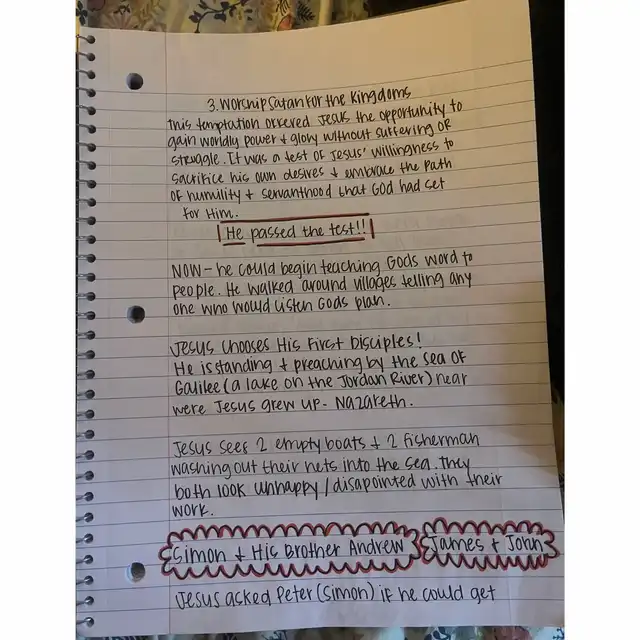 3. Worship Satan for the Kingdoms
This temptation offered Jesus the opportunity to
gain worldly power + glory without suffering or
struggle. It was a test of Jesus' willingness to
sacrifice his own desires + embrace the path
of humility + servanthood that God had set
for Him.
He passed the test!!
NOW - he could begin teaching Gods word to
people. He walked around villages telling any
one who would listen Gods plan.
Jesus Chooses His First Disciples!
He is standing + preaching by the Sea of
Galilee (a lake on the Jordan River) near
were Jesus grew up - Nazareth.
Jesus sees 2 empty boats + 2 fisherman
washing out their nets into the sea. They
both look unhappy/disapointed with their
work.
Simon + His Brother Andrew James + John
Jesus asked Peter (Simon) if he could get